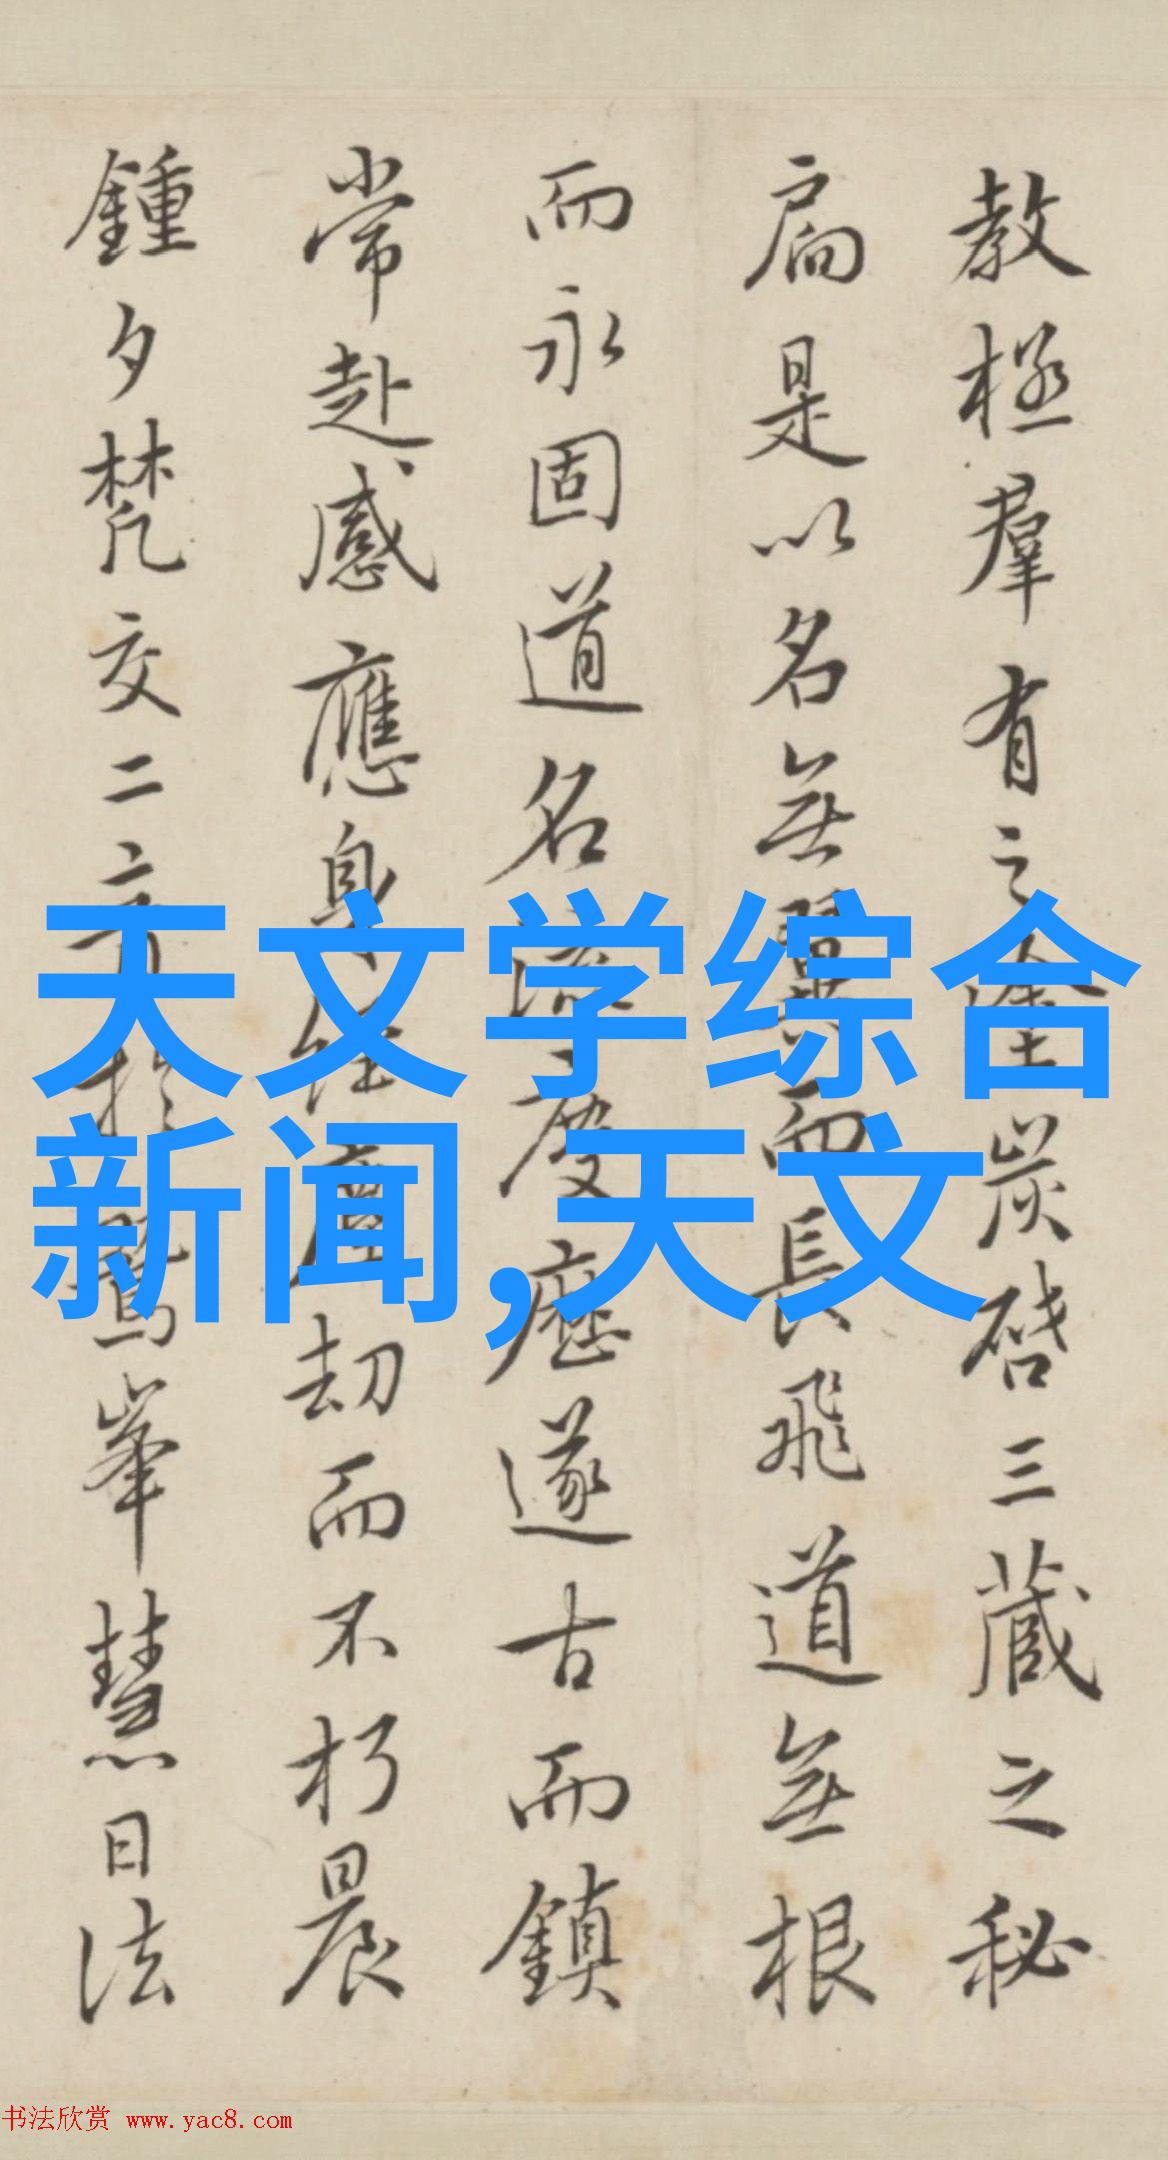 教極羣有之塗炭啓三藏之秘
扃是以名無翼而長飛道無根
而永固道名流慶歷遂古而鎮
常赴感應身經塵劫而不朽晨
鍾夕梵交二音於鷲峯慧日法
天文学综合
新闻,天文
书法欣赏 www.yac8.com